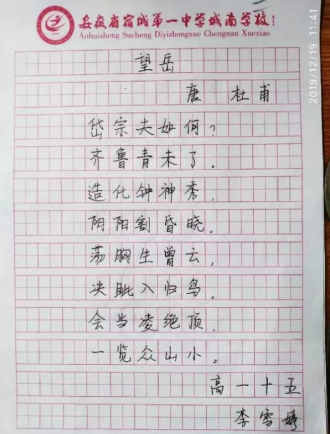 安徽省宿城第一中学城南学校
Anhuisheng Sucheng Diyizhongxue Chengnan Xuexiao
望岳
唐 杜甫
岱宗夫如何?
齐鲁青未了。
造化钟神秀,
阴阳割昏晓。
荡胸生曾云,
决眦入归鸟。
会当凌绝顶,
一览众山小。
高一十五
李雪婷
2019/12/19 11:41